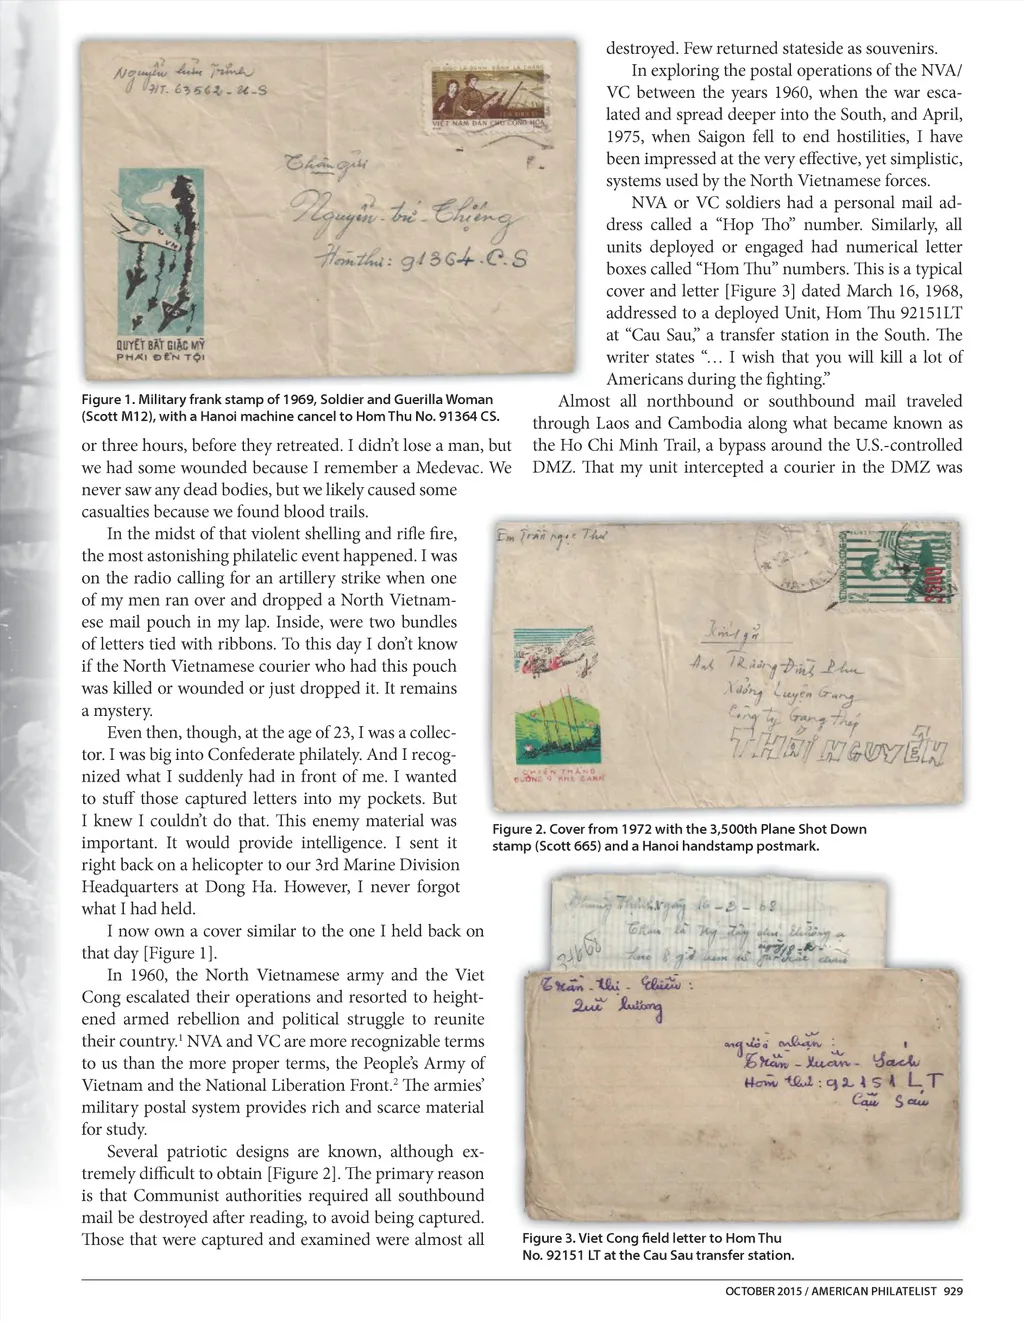 Nguyễn hữu Trinh
HT. 63562-U-S
VIỆT NAM DÂN CHỦ CỘNG HÒA
Thân gửi
Nguyễn-bá-Thiềng
Hòm thư: 91364.C.S
VN
US
QUYẾT BẮT GIẶC MỸ
PHẢI ĐỀN TỘI
Figure 1. Military frank stamp of 1969, Soldier and Guerilla Woman
(Scott M12), with a Hanoi machine cancel to Hom Thu No. 91364 CS.
or three hours, before they retreated. I didn’t lose a man, but
we had some wounded because I remember a Medevac. We
never saw any dead bodies, but we likely caused some
casualties because we found blood trails.
In the midst of that violent shelling and rifle fire,
the most astonishing philatelic event happened. I was
on the radio calling for an artillery strike when one
of my men ran over and dropped a North Vietnam-
ese mail pouch in my lap. Inside, were two bundles
of letters tied with ribbons. To this day I don’t know
if the North Vietnamese courier who had this pouch
was killed or wounded or just dropped it. It remains
a mystery.
Even then, though, at the age of 23, I was a collec-
tor. I was big into Confederate philately. And I recog-
nized what I suddenly had in front of me. I wanted
to stuff those captured letters into my pockets. But
I knew I couldn’t do that. This enemy material was
important. It would provide intelligence. I sent it
right back on a helicopter to our 3rd Marine Division
Headquarters at Dong Ha. However, I never forgot
what I had held.
I now own a cover similar to the one I held back on
that day [Figure 1].
In 1960, the North Vietnamese army and the Viet
Cong escalated their operations and resorted to height-
ened armed rebellion and political struggle to reunite
their country.¹ NVA and VC are more recognizable terms
to us than the more proper terms, the People’s Army of
Vietnam and the National Liberation Front.² The armies’
military postal system provides rich and scarce material
for study.
Several patriotic designs are known, although ex-
tremely difficult to obtain [Figure 2]. The primary reason
is that Communist authorities required all southbound
mail be destroyed after reading, to avoid being captured.
Those that were captured and examined were almost all
destroyed. Few returned stateside as souvenirs.
In exploring the postal operations of the NVA/
VC between the years 1960, when the war esca-
lated and spread deeper into the South, and April,
1975, when Saigon fell to end hostilities, I have
been impressed at the very effective, yet simplistic,
systems used by the North Vietnamese forces.
NVA or VC soldiers had a personal mail ad-
dress called a “Hop Tho” number. Similarly, all
units deployed or engaged had numerical letter
boxes called “Hom Thu” numbers. This is a typical
cover and letter [Figure 3] dated March 16, 1968,
addressed to a deployed Unit, Hom Thu 92151LT
at “Cau Sau,” a transfer station in the South. The
writer states “… I wish that you will kill a lot of
Americans during the fighting.”
Almost all northbound or southbound mail traveled
through Laos and Cambodia along what became known as
the Ho Chi Minh Trail, a bypass around the U.S.-controlled
DMZ. That my unit intercepted a courier in the DMZ was
Em Trần ngọc Thư
3500
Kính gửi
Anh Trương Đình Phu
Xưởng Luyện Gang
Công ty Gang thép
THÁI NGUYÊN
CHIẾN THẮNG
ĐƯỜNG 9 KHE SANH
Figure 2. Cover from 1972 with the 3,500th Plane Shot Down
stamp (Scott 665) and a Hanoi handstamp postmark.
Ngày 16-3-68
Trần-thị-Chiều:
Quế lương
người nhận:
Trần-Xuân-Sách
Hòm thư: 92151 LT
Cầu Sáu
Figure 3. Viet Cong field letter to Hom Thu
No. 92151 LT at the Cau Sau transfer station.
OCTOBER 2015 / AMERICAN PHILATELIST 929